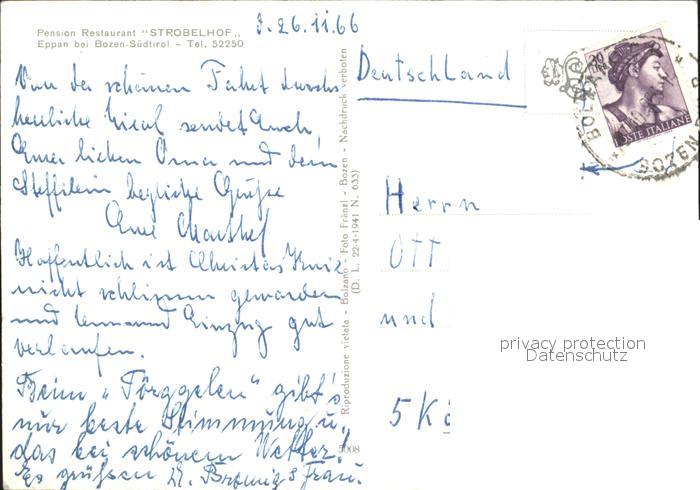 Pension Restaurant "STROBELHOF"
Eppan bei Bozen-Südtirol - Tel. 52250
26.11.66
Von der schönen Fahrt durchs
herrliche Tirol sendet Euch
lieben Oma und dem
Steffilein herzliche Grüße
Hoffentlich ist Christas Knie
nicht schlimm geworden
und Einzug gut
verlaufen.
Beim "Törggelen" gibt's
nur beste Stimmung u.
das bei schönem Wetter!
Es grüßen u. Frau.
Riproduzione vietata - Bolzano - Foto Fränzl - Bozen - Nachdruck verboten
(D. L. 22-4-1941 N. 633)
5008
Deutschland
POSTE ITALIANE
BOZEN
Herrn
Ott
und
5 Kö
privacy protection
Datenschutz